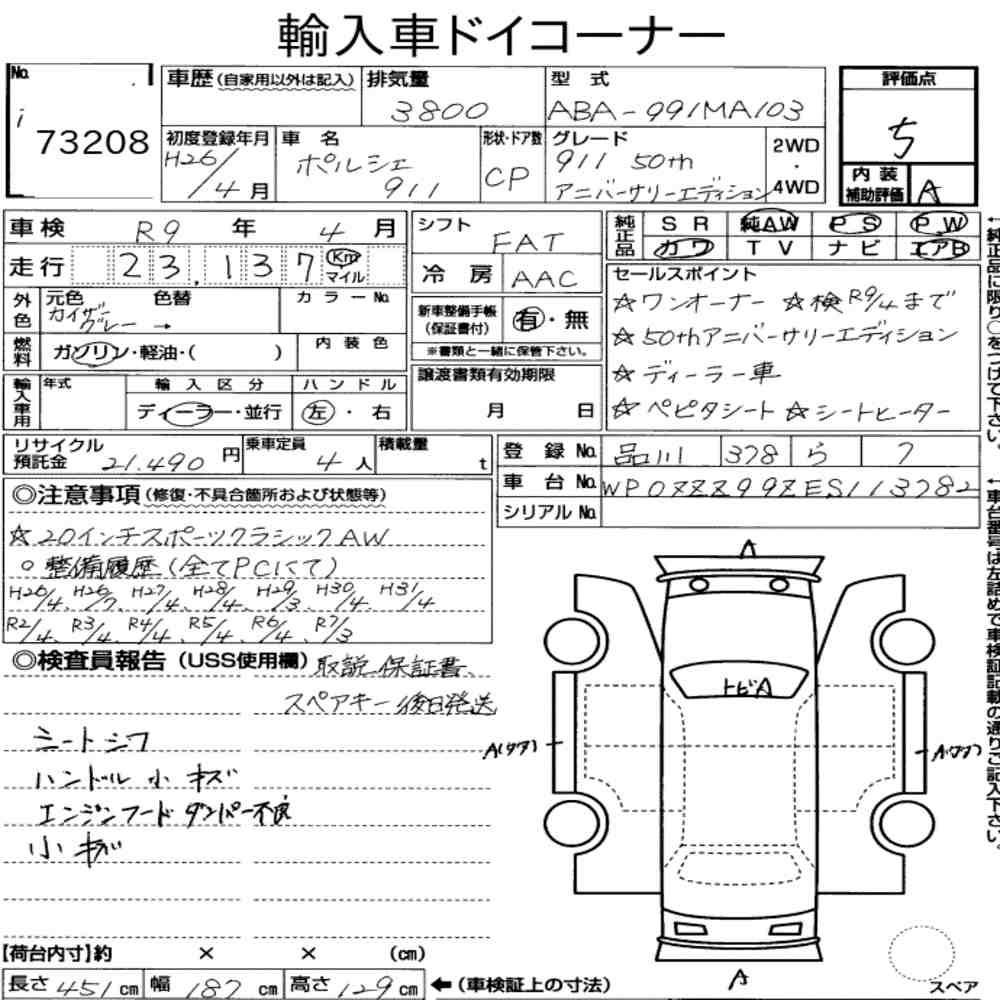 輸入車ドイコーナー
No.
i
73208
車歴(自家用以外は記入)
排気量
3800
型式
ABA-991MA103
評価点
5
初度登録年月
H26/4月
車名
ポルシェ
911
形状・ドア数
CP
グレード
911 50th
アニバーサリーエディション
2WD
・
4WD
内装
補助評価
A
車検 R9年 4月
走行 23,137 Km マイル
外色
元色
カイザーグレー →
色替
カラーNo.
燃料
ガソリン・軽油・( )
内装色
輸入車用
年式
輸入区分
ディーラー・並行
ハンドル
左・右
シフト
FAT
冷房
AAC
新車整備手帳
(保証書付)
有・無
※書類と一緒に保管下さい。
譲渡書類有効期限
月 日
純正品
SR 純AW PS PW
カワ TV ナビ エアB
セールスポイント
☆ワンオーナー ☆検R9/4まで
☆50thアニバーサリーエディション
☆ディーラー車
☆ペピタシート ☆シートヒーター
←純正品に限り○をつけて下さい。
リサイクル
預託金 21,490円
乗車定員
4人
積載量
t
登録No. 品川 378 ら 7
車台No. WP0ZZZ99ZES113782
シリアルNo.
←車台番号は左詰めで車検証記載の通りご記入下さい。
◎注意事項(修復・不具合箇所および状態等)
☆20インチスポーツクラシックAW
○整備履歴(全てPCにて)
H26/4、H26/7、H27/4、H28/4、H29/3、H30/4、H31/4
R2/4、R3/4、R4/4、R5/4、R6/4、R7/3
◎検査員報告(USS使用欄)
取説、保証書、
スペアキー後日発送
シートシワ
ハンドル小キズ
エンジンフードダンパー不良
小キズ
A
トビA
A(タテ)
A(タテ)
A
スペア
【荷台内寸】約 × × (cm)
長さ451cm 幅187cm 高さ129cm ←(車検証上の寸法)